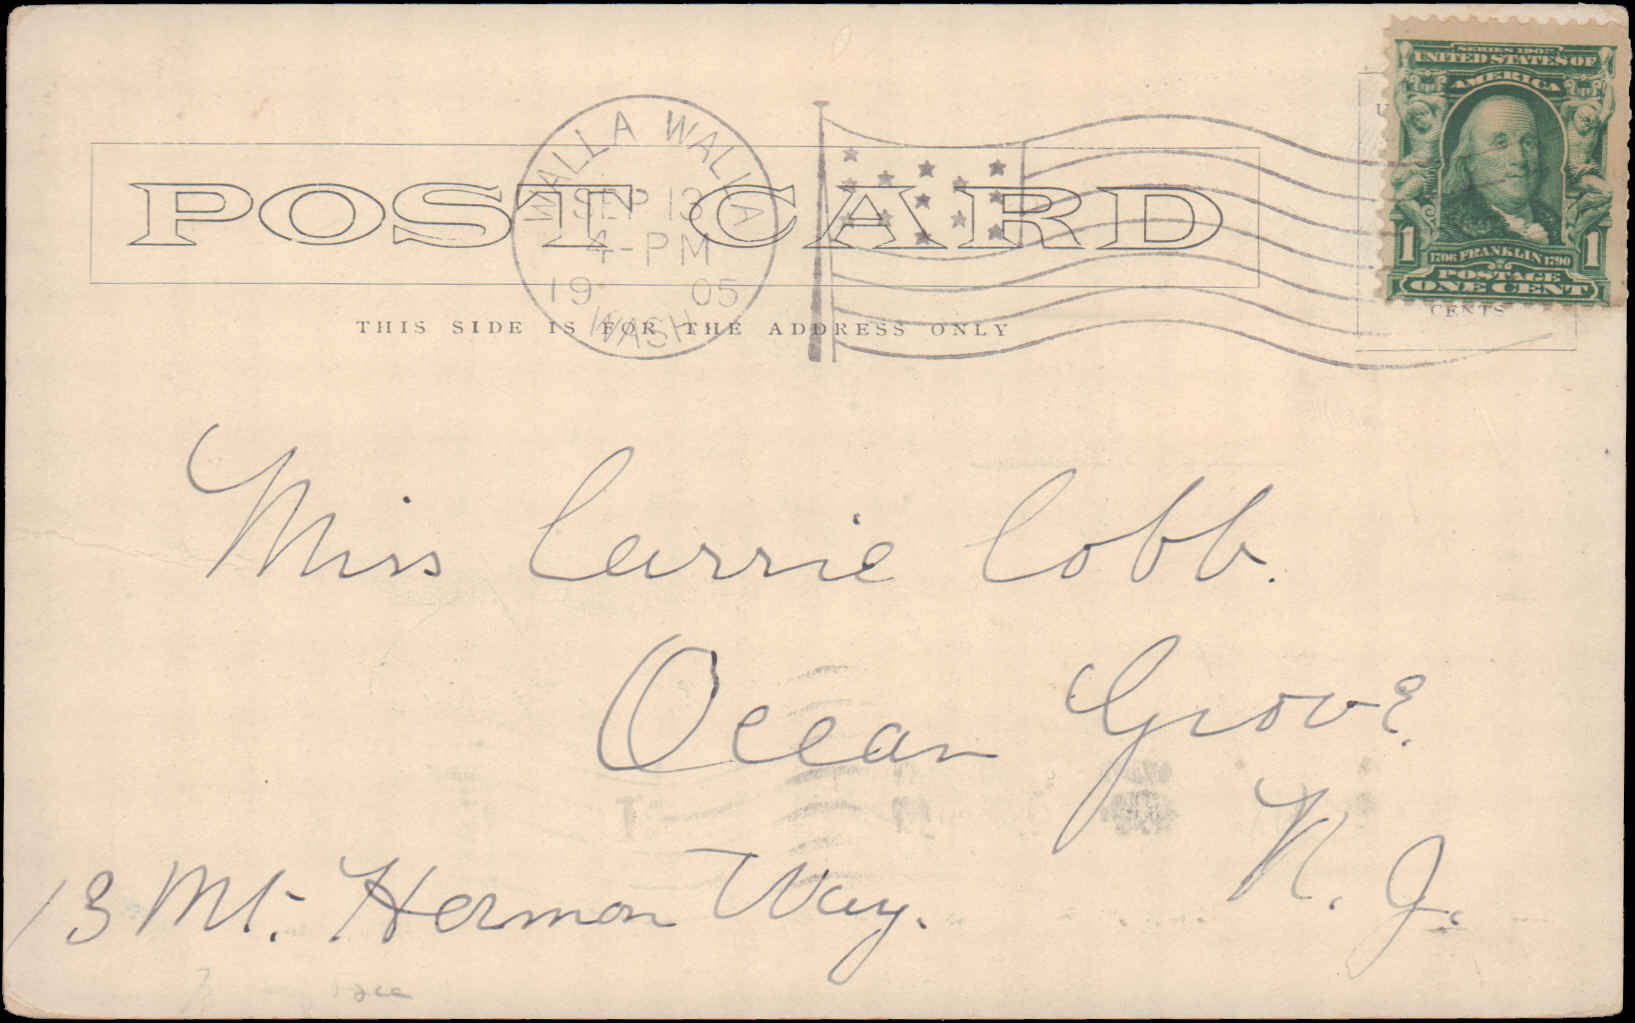 SERIES 1902
UNITED STATES OF
AMERICA
1 1
1706 FRANKLIN 1790
POSTAGE
ONE CENT
CENTS
WALLA WALLA
SEP 13
4-PM
19 05
WASH.
POST CARD
THIS SIDE IS FOR THE ADDRESS ONLY
Miss Carrie Cobb.
Ocean Grove.
N. J.
13 Mt. Hermon Way.